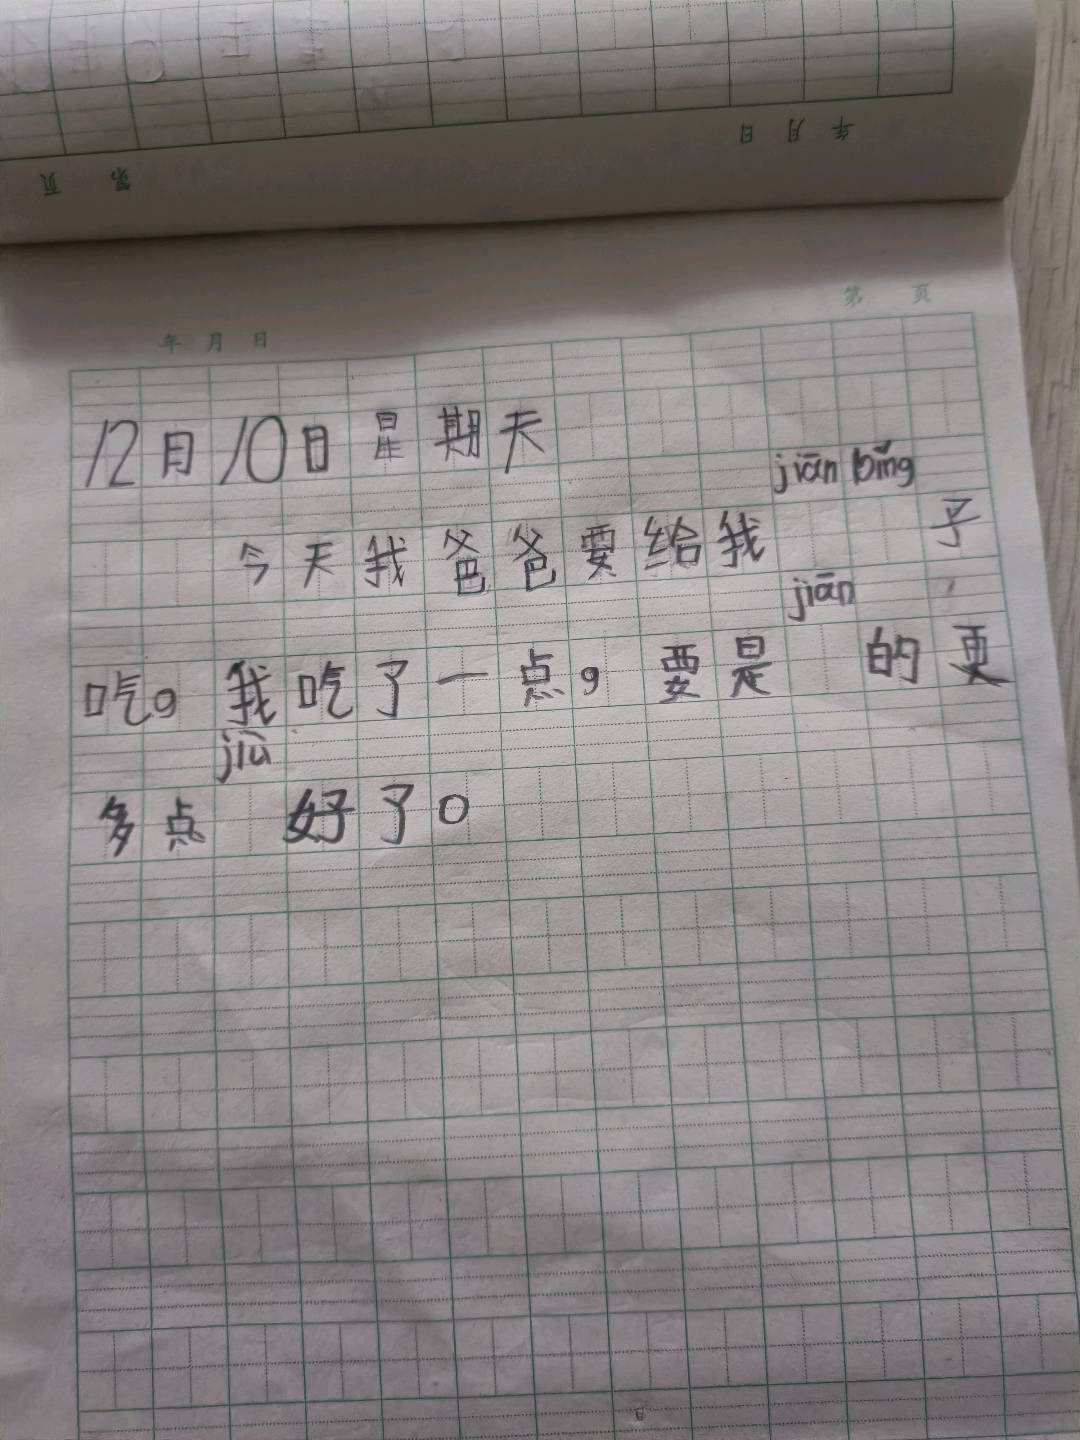 年 月 日
第 页
年 月 日
第 页
12月10日 星期天
jiān bǐng
今天我爸爸要给我 子
jiān
吃，我吃了一点，要是 的更
jiù
多点 好了。